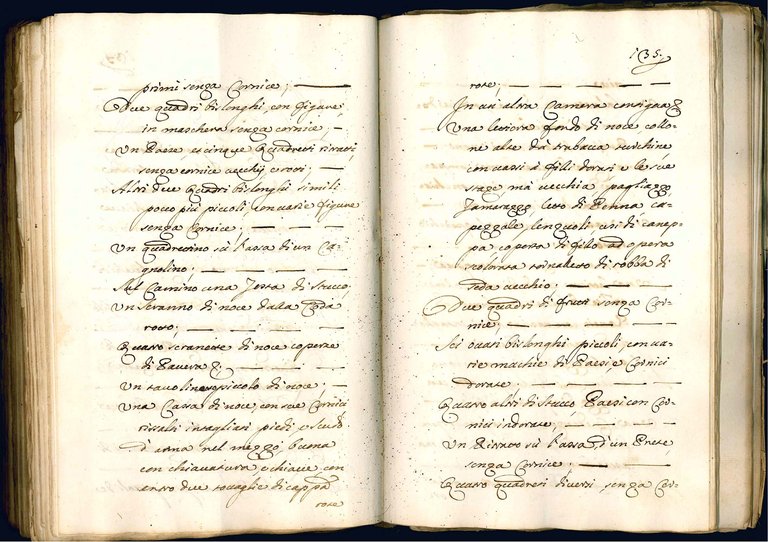 primi senza Cornice;
Due quadri bislonghi, con figure
in maschera senza cornice;
Un Paese, e cinque Quadretti ritratti
senza cornice vecchij, e rotti;
Altri due Quadri bislonghi simili
poco più piccoli, con varie figure
senza Cornice;
Un quadrettino sù l'assa di un Ca-
gnolino;
Sul Camino una Testa di Stucco
Un scranno di noce dalla Coda
rotto;
Quattro scranette di noce coperte
di Pavera
Un tavolino piccolo di noce;
Una Cassa di noce, con sue Cornici
rissalti intagliati piedi, e scudo
d'arma nel mezzo, buona
con chiavatura, e chiave, con
entro due tovaglie di cappa
rotte
135.
rotte;
In un altra Camera contigua
Una lettiera fondo di noce collo-
ne alte da trabacca
con vassi à fili dorati e le sue
stagge, mà vecchia, pagliazzo,
Tamarazzo, letto di Penna ca-
pezzale, lenzuoli usi di canep-
pa coperta di filo ad opera
scolorata tornaletto di robba di
seda vecchio;
Due quadri di frutti senza Cor-
nice;
Sei ovati bislonghi piccoli, con va-
rie machie di Paesi, e Cornici
dorate;
Quattro altri di Stucco Paesi con Cor-
nici indorate;
Un Ritratto sù l'assa d'un Prete
senza Cornice;
Quattro quadretti diversi senza Cor-